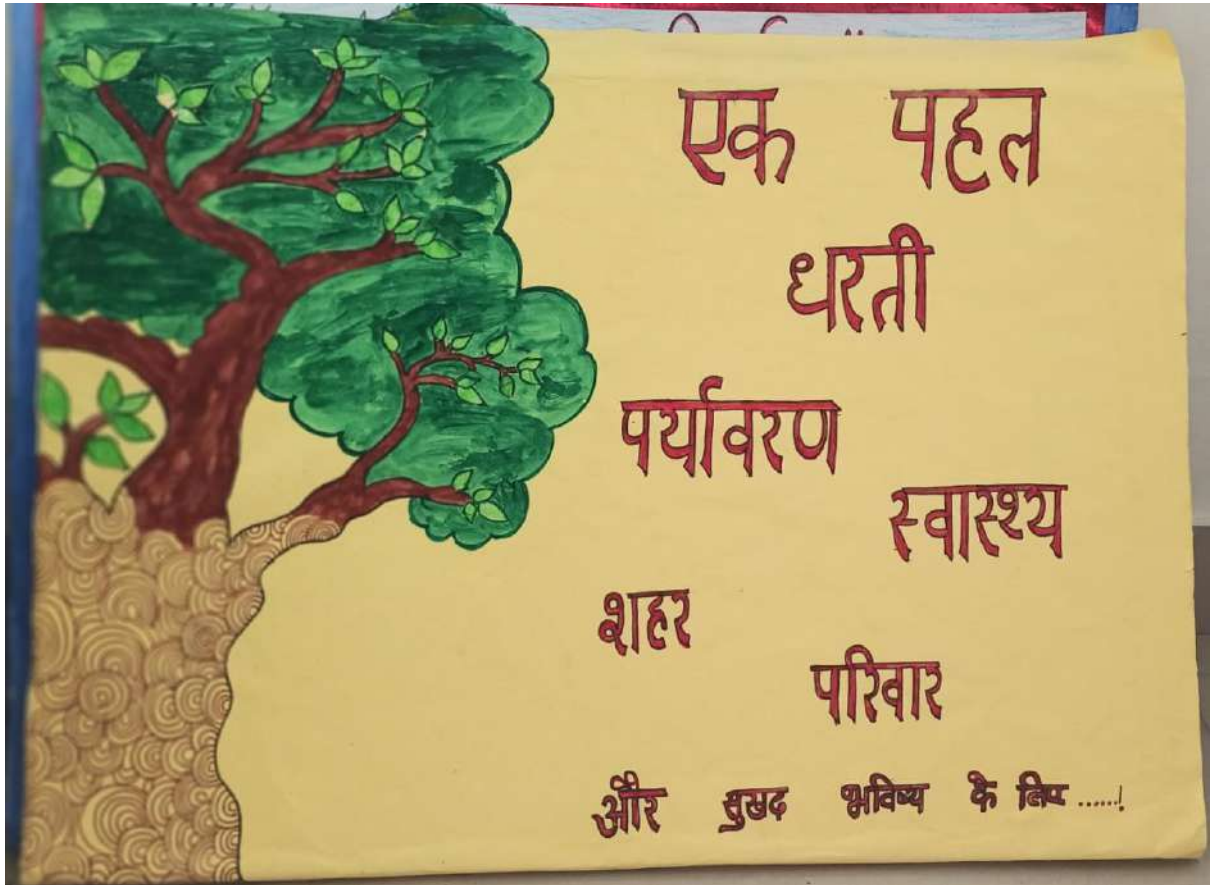 एक पहल
धरती
पर्यावरण
स्वास्थ्य
शहर
परिवार
और सुखद भविष्य के लिए ......!